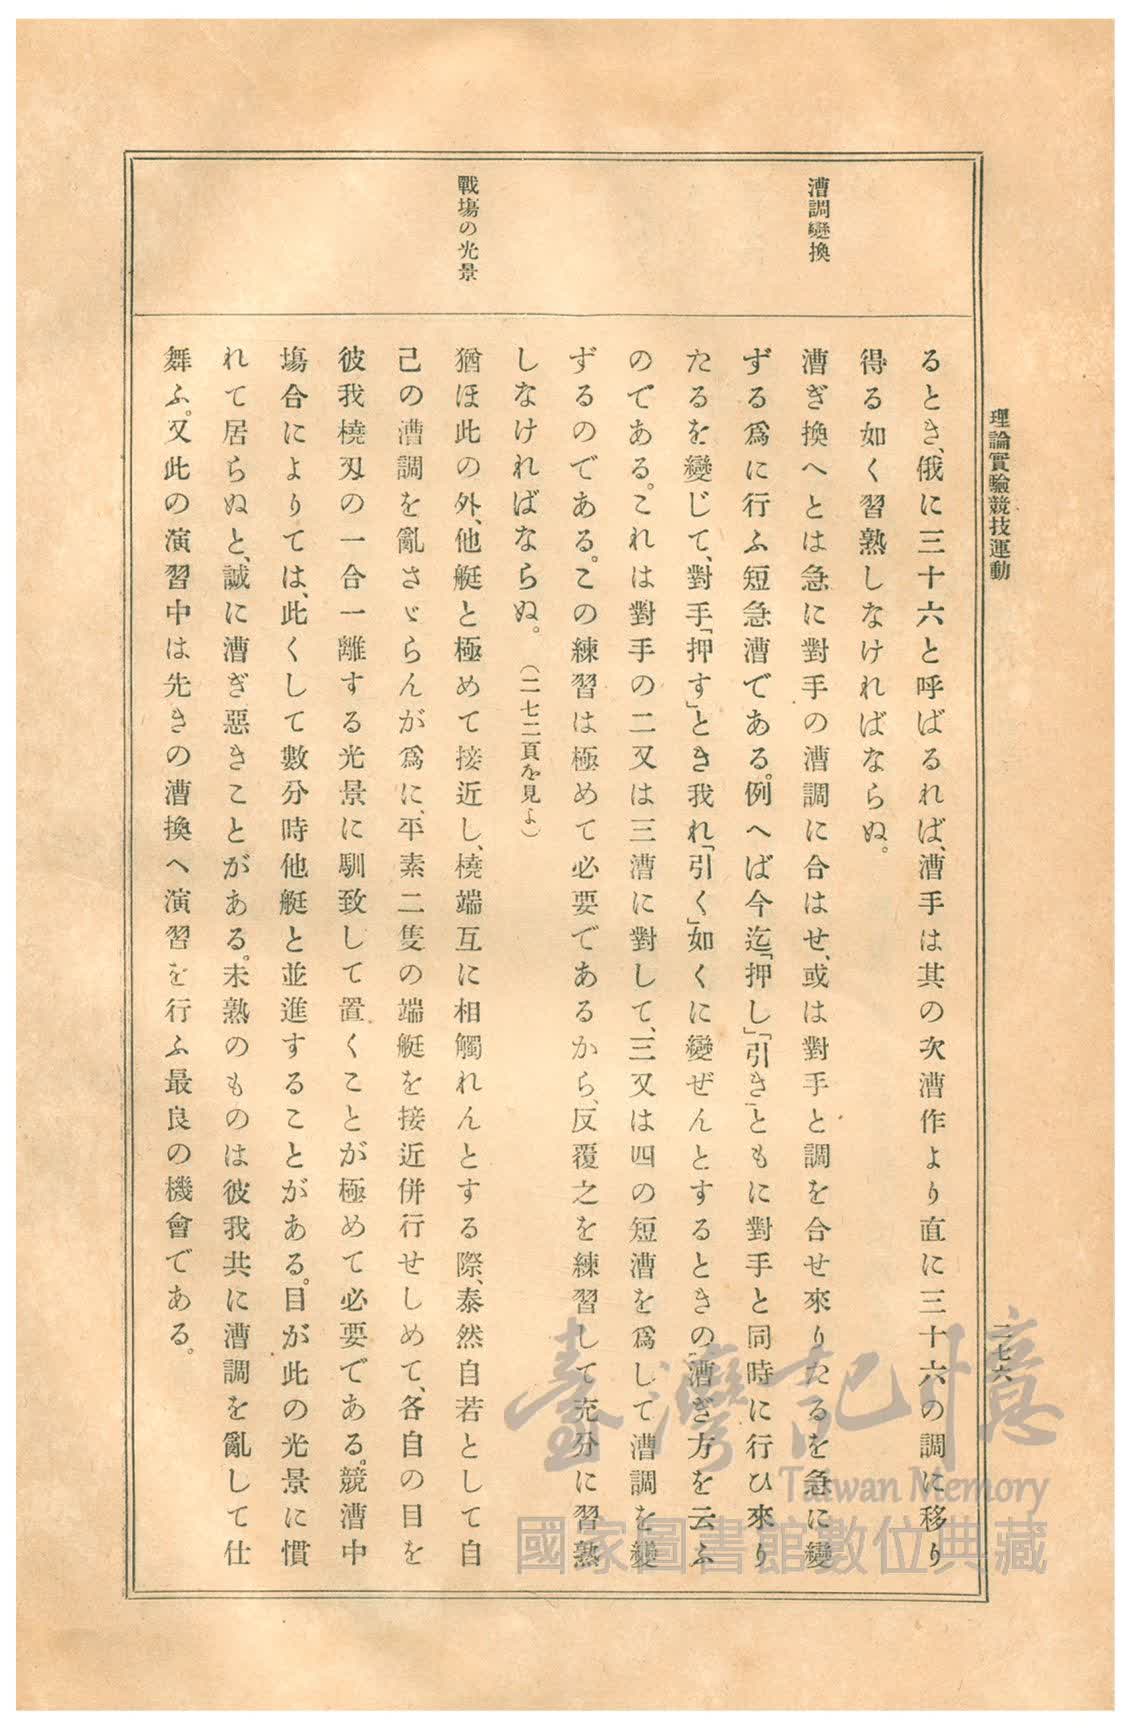 理論實驗競技運動
二七六
漕調變換
戰塲の光景
るとき、俄に三十六と呼ばるれば、漕手は其の次漕作より直に三十六の調に移り
得る如く習熟しなければならぬ。
漕ぎ換へとは急に對手の漕調に合はせ、或は對手と調を合せ來りたるを急に變
ずる爲に行ふ短急漕である。例へば今迄「押し」「引き」ともに對手と同時に行ひ來り
たるを變じて、對手「押す」とき我れ「引く」如くに變ぜんとするときの漕ぎ方を云ふ
のである。これは對手の二又は三漕に對して、三又は四の短漕を爲して漕調を變
ずるのである。この練習は極めて必要であるから、反覆之を練習して充分に習熟
しなければならぬ。(二七二頁を見よ)
猶ほ此の外、他艇と極めて接近し、橈端互に相觸れんとする際、泰然自若として自
己の漕調を亂さゞらんが爲に、平素二隻の端艇を接近併行せしめて、各自の目を
彼我橈刄の一合一離する光景に馴致して置くことが極めて必要である。競漕中
塲合によりては、此くして數分時他艇と並進することがある。目が此の光景に慣
れて居らぬと、誠に漕ぎ惡きことがある。未熟のものは彼我共に漕調を亂して仕
舞ふ。又此の演習中は先きの漕換へ演習を行ふ最良の機會である。
臺灣記憶
Taiwan Memory
國家圖書館數位典藏